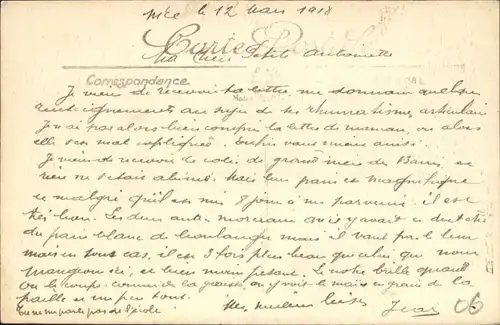 Nice le 12 Mars 1918
Carte Postale
Ma Chère Petite Antoinette
Correspondance
Je viens de recevoir ta lettre me donnant quelques
renseignements au sujet de tes rhumatismes articulaires
Je n'ai pas alors bien compris la lettre de maman, ou alors
elle s'est mal expliquée. Enfin vaut mieux ainsi.
Je viens de recevoir le colis de grand mère de Paris, et
rien ne s'était abimé. Mais leur pain est magnifique
et malgré qu'il est mis 8 jours à me parvenir il est
très bien. Les deux autres morceaux qu'il y avait
du pain blanc de boulanger mais il vaut pas le leur
mais en tous cas, il est 3 fois plus beau que celui que nous
mangeons ici, et bien moins pesant. Le notre brille quand
on le coupe comme de la graisse, on y voit le maïs en grain de la
paille et un peu tout.
Tu me parles pas de l'école
Mes meilleurs baisers Jean
06